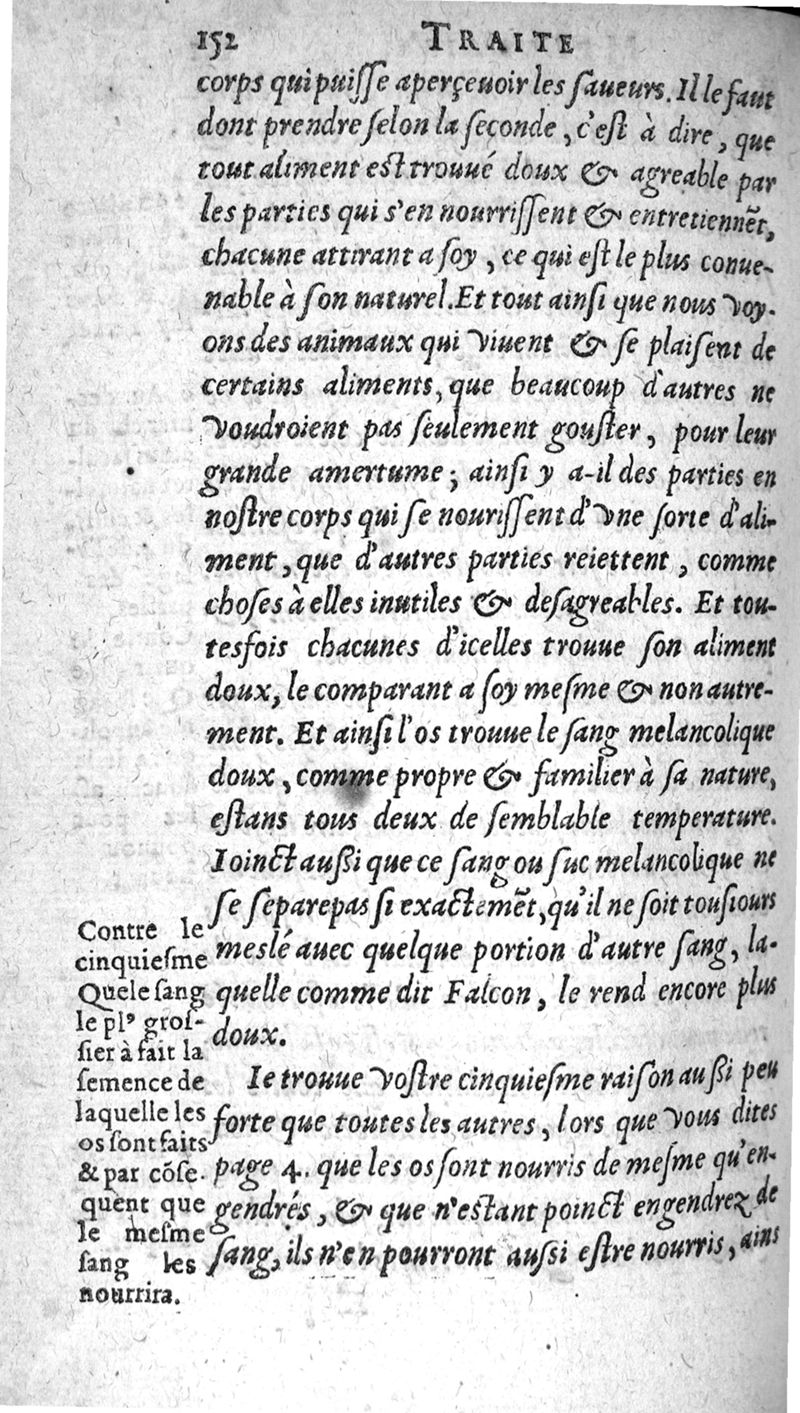 152 TRAITE
corps qui puiſſe aperçeuoir les ſaueurs. Il le faut
dont prendre ſelon la ſeconde, c'eſt à dire, que
tout aliment eſt trouué doux & agreable par
les parties qui s'en nourriſſent & entretiennẽt,
chacune attirant a ſoy, ce qui eſt le plus conue-
nable à ſon naturel. Et tout ainſi que nous voy-
ons des animaux qui viuent & ſe plaiſent de
certains aliments, que beaucoup d'autres ne
voudroient pas ſeulement gouſter, pour leur
grande amertume; ainſi y a-il des parties en
noſtre corps qui ſe nouriſſent d'vne ſorte d'ali-
ment, que d'autres parties reiettent, comme
choſes à elles inutiles & deſagreables. Et tou-
tesfois chacunes d'icelles trouue ſon aliment
doux, le comparant a ſoy meſme & non autre-
ment. Et ainſi l'os trouue le ſang melancolique
doux, comme propre & familier à ſa nature,
eſtans tous deux de ſemblable temperature.
Ioinct auſſi que ce ſang ou ſuc melancolique ne
ſe ſepare pas ſi exactemẽt, qu'il ne ſoit touſiours
meslé auec quelque portion d'autre ſang, la-
quelle comme dit Falcon, le rend encore plus
doux.
Ie trouue voſtre cinquieſme raiſon auſſi peu
forte que toutes les autres, lors que vous dites
page 4. que les os ſont nourris de meſme qu'en-
gendrés, & que n'eſtant poinct engendrez de
ſang, ils n'en pourront auſſi eſtre nourris, ains
Contre le
cinquieſme
Que le ſang
le plꝰ groſ-
ſier à fait la
ſemence de
laquelle les
os ſont faits
& par cõſe-
quent que
le meſme
ſang les
nourrira.